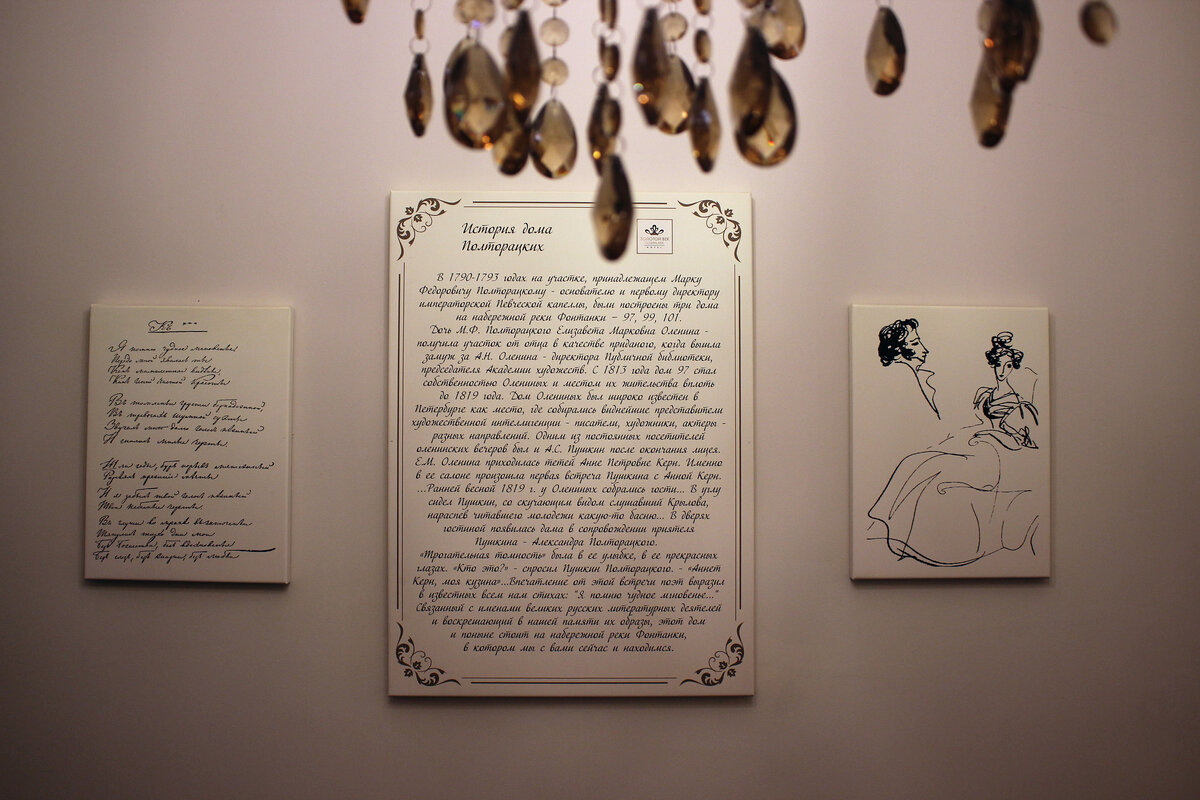 Къ ***
Я помню чудное мгновенье
Передо мной явилась ты,
Какъ мимолетное видѣнье,
Какъ геній чистой красоты
Въ томленьяхъ грусти безнадежной,
Въ тревогахъ шумной суеты
Звучалъ мнѣ долго голосъ нѣжный
И снились милыя черты.
Шли годы, бурь порывъ мятежный
Разсѣялъ прежнія мечты
И я забылъ твой голосъ нѣжный
Твои небесныя черты.
Въ глуши во мракѣ заточенья
Тянулись тихо дни мои
Безъ божества, безъ вдохновенья
Безъ слезъ, безъ жизни, безъ любви
История дома
Полторацких
ЗОЛОТОЙ ВЕК
В 1790-1793 годах на участке, принадлежащем Марку
Федоровичу Полторацкому - основателю и первому директору
императорской Певческой капеллы, были построены три дома
на набережной реки Фонтанки – 97, 99, 101.
Дочь М.Ф. Полторацкого Елизавета Марковна Оленина -
получила участок от отца в качестве приданого, когда вышла
замуж за А.Н. Оленина - директора Публичной библиотеки,
председателя Академии художеств. С 1813 года дом 97 стал
собственностью Олениных и местом их жительства вплоть
до 1819 года. Дом Олениных был широко известен в
Петербурге как место, где собирались виднейшие представители
художественной интеллигенции - писатели, художники, актеры -
разных направлений. Одним из постоянных посетителей
оленинских вечеров был и А.С. Пушкин после окончания лицея.
Е.М. Оленина приходилась тетей Анне Петровне Керн. Именно
в ее салоне произошла первая встреча Пушкина с Анной Керн.
...Ранней весной 1819 г. у Олениных собрались гости... В углу
сидел Пушкин, со скучающим видом слушавший Крылова,
нараспев читавшего молодежи какую-то басню... В дверях
гостиной появилась дама в сопровождении приятеля
Пушкина - Александра Полторацкого.
«Трогательная томность» была в ее улыбке, в ее прекрасных
глазах. «Кто это?» - спросил Пушкин Полторацкого. - «Аннет
Керн, моя кузина»...Впечатление от этой встречи поэт выразил
в известных всем нам стихах: "Я помню чудное мгновенье..."
Связанный с именами великих русских литературных деятелей
и воскрешающий в нашей памяти их образы, этот дом
и поныне стоит на набережной реки Фонтанки,
в котором мы с вами сейчас и находимся.